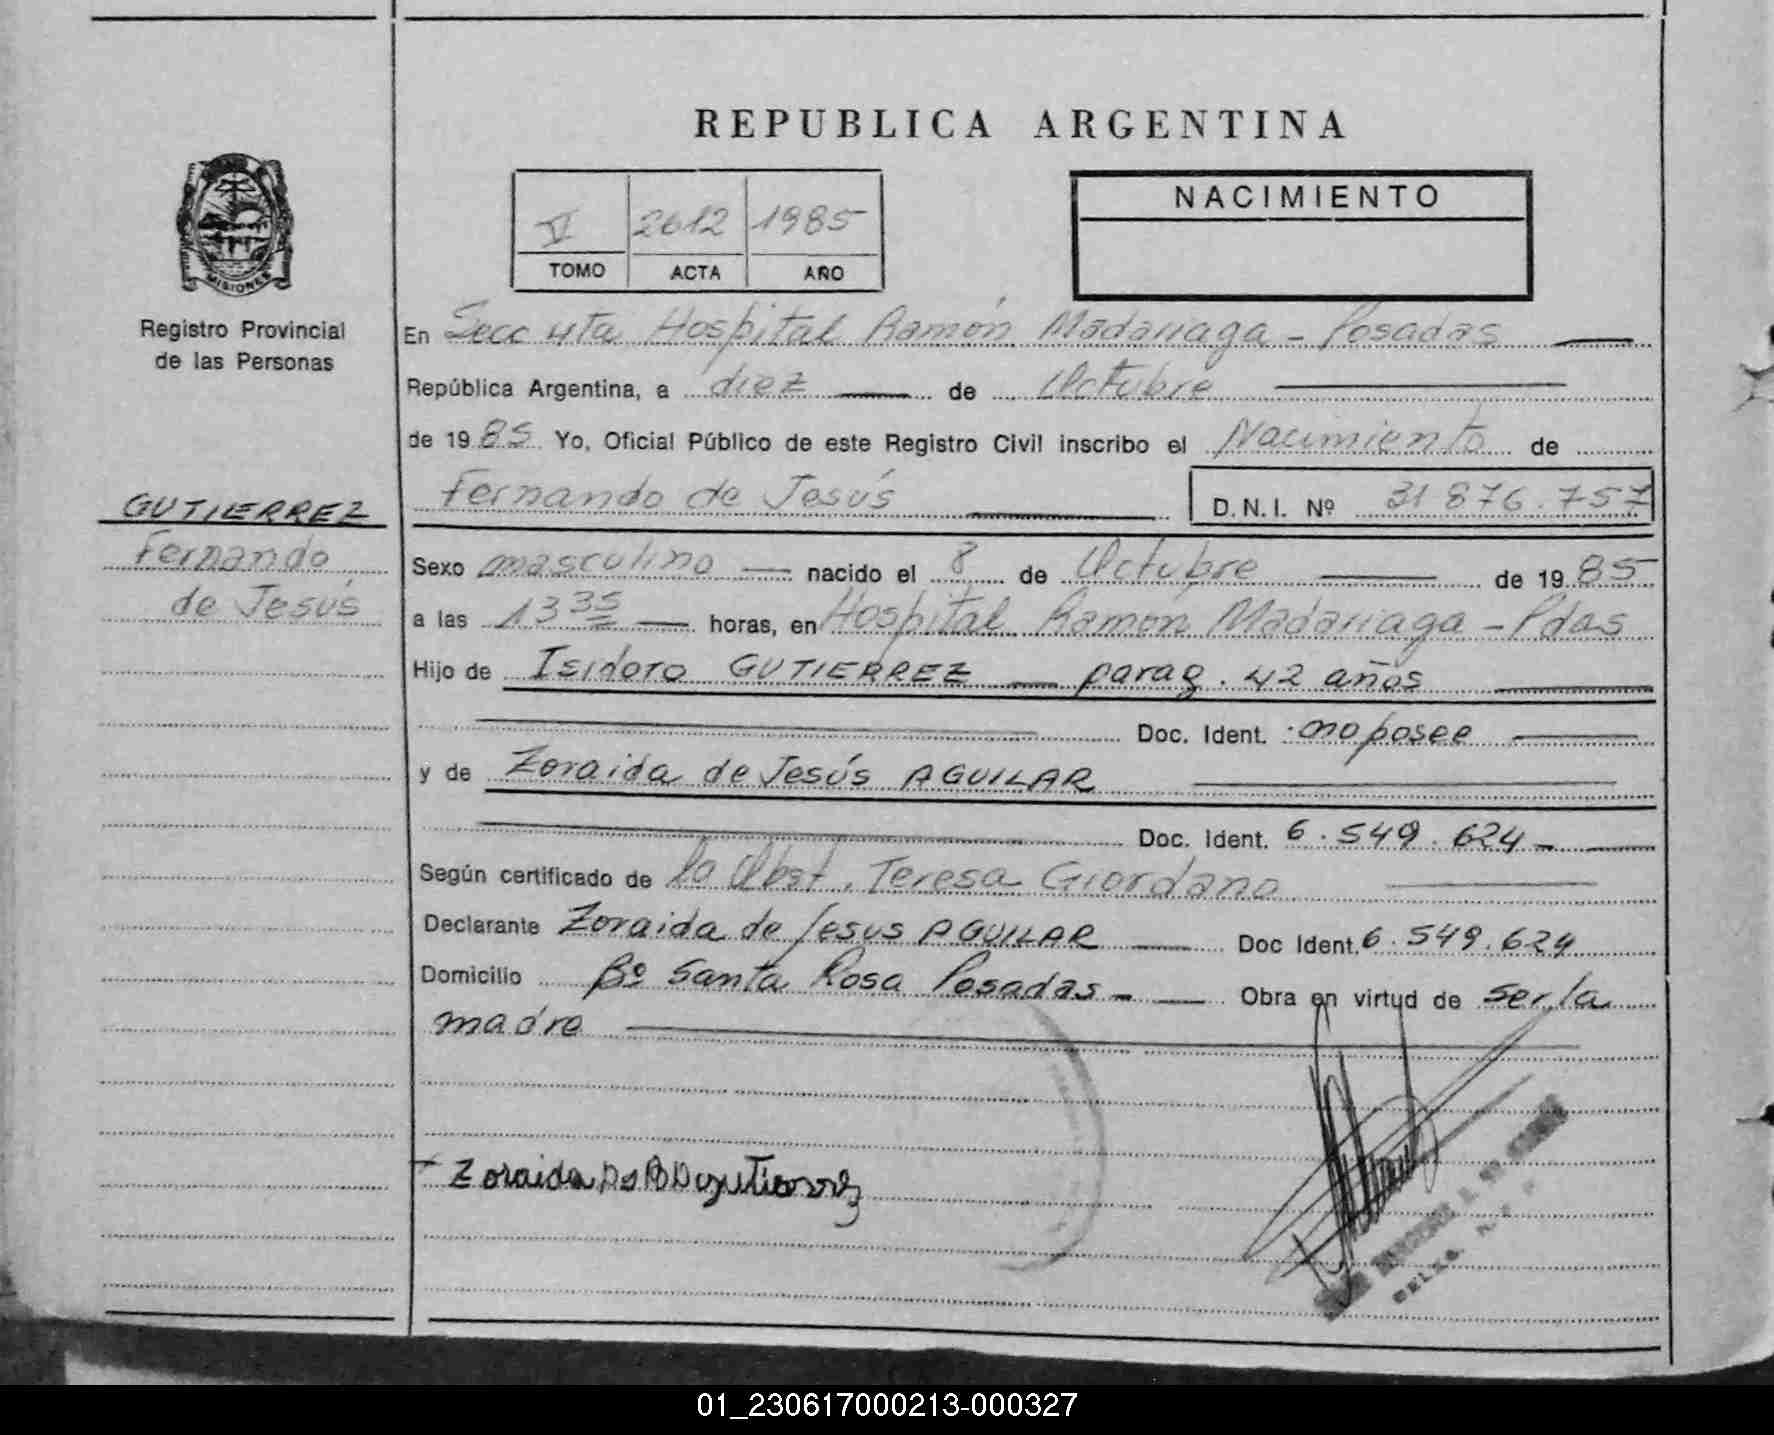 REPUBLICA ARGENTINA
NACIMIENTO
VI 2612 1985
TOMO ACTA AÑO
MISIONES
Registro Provincial
de las Personas
GUTIERREZ
Fernando
de Jesús
En Secc 4ta Hospital Ramón Madariaga - Posadas
República Argentina, a diez de Octubre
de 1985 Yo, Oficial Público de este Registro Civil inscribo el Nacimiento de
Fernando de Jesús D.N.I. Nº 31 876.757
Sexo masculino nacido el 8 de Octubre de 1985
a las 13 35 horas, en Hospital Ramón Madariaga - Pdas
Hijo de Isidoro GUTIERREZ parag. 42 años
Doc. Ident. no posee
y de Zoraida de Jesús AGUILAR
Doc. Ident. 6.549.624
Según certificado de la Obst. Teresa Giordano
Declarante Zoraida de Jesus AGUILAR Doc Ident. 6.549.624
Domicilio Bº Santa Rosa Posadas - Obra en virtud de ser la
madre
Zoraida
01_230617000213-000327